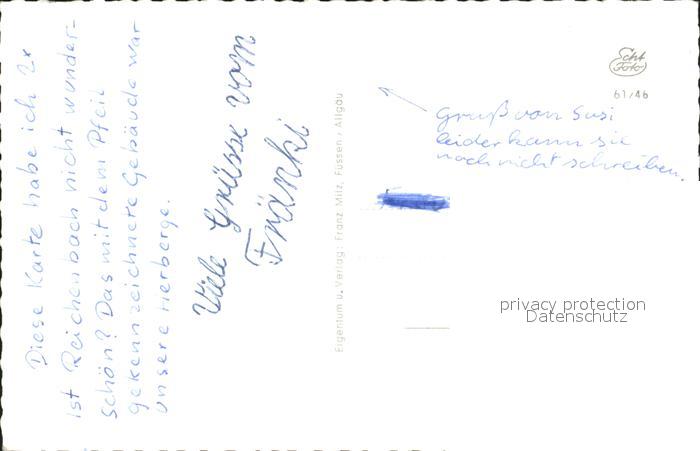 Diese Karte habe ich 2x
Ist Reichenbach nicht wunder-
schön? Das mit dem Pfeil
gekennzeichnete Gebäude war
unsere Herberge.
Viele Grüsse vom
Fränki
Eigentum u. Verlag: Franz Milz, Füssen / Allgäu
Echt
Foto
61/46
Gruß von Susi
leider kann sie
noch nicht schreiben.
privacy protection
Datenschutz